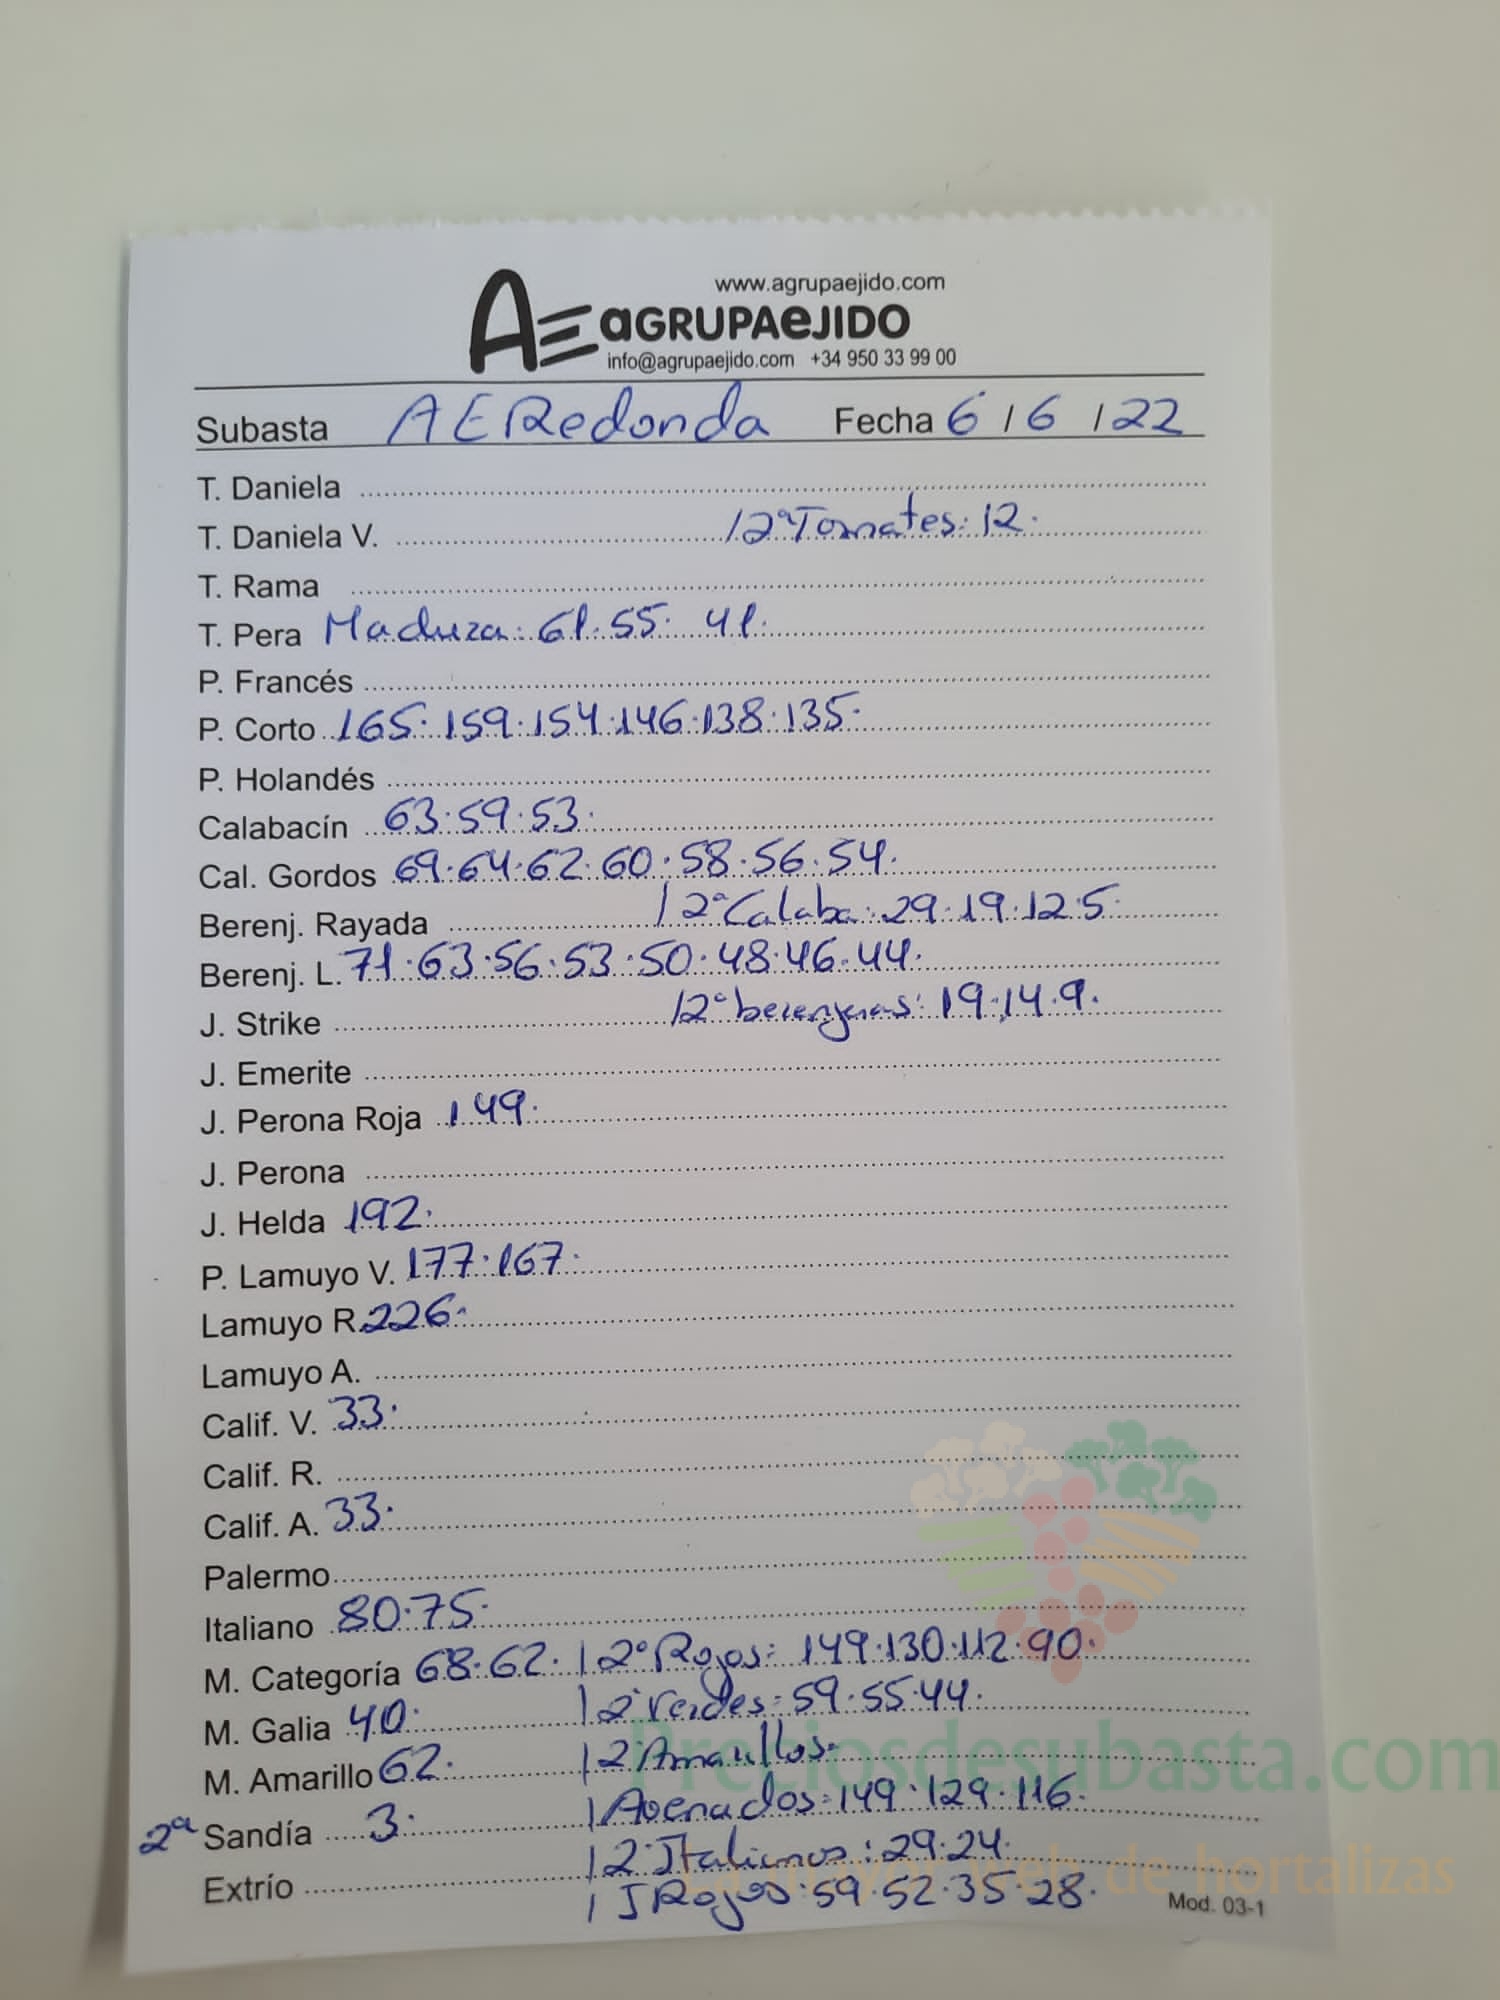 www.agrupaejido.com
AE aGRUPAeJIDO
info@agrupaejido.com +34 950 33 99 00
Subasta AERedonda Fecha 6 / 6 / 22
T. Daniela
T. Daniela V. / 2ªTomates: 12.
T. Rama
T. Pera Maduza: 61.55. 41.
P. Francés
P. Corto 165.159.154.146.138.135.
P. Holandés
Calabacín 63.59.53.
Cal. Gordos 69.64.62.60.58.56.54.
Berenj. Rayada / 2ªCalaba: 29.19.12.5.
Berenj. L. 71.63.56.53.50.48.46.44.
J. Strike / 2ªberenjenas: 19.14.9.
J. Emerite
J. Perona Roja 149.
J. Perona
J. Helda 192.
P. Lamuyo V. 177.167.
Lamuyo R. 226.
Lamuyo A.
Calif. V. 33.
Calif. R.
Calif. A. 33.
Palermo
Italiano 80.75.
M. Categoría 68.62. / 2ºRojos: 149.130.112.90.
M. Galia 40. / 2 Verdes: 59.55.44.
M. Amarillo 62. / 2 Amarillos.
2ª Sandía 3. / Asenados: 149.129.116.
Extrío / 2 Italianos: 29.24.
/ J Rojos: 59.52.35.28.
Mod. 03-1
Preciosdesubasta.com
La mayor web de hortalizas